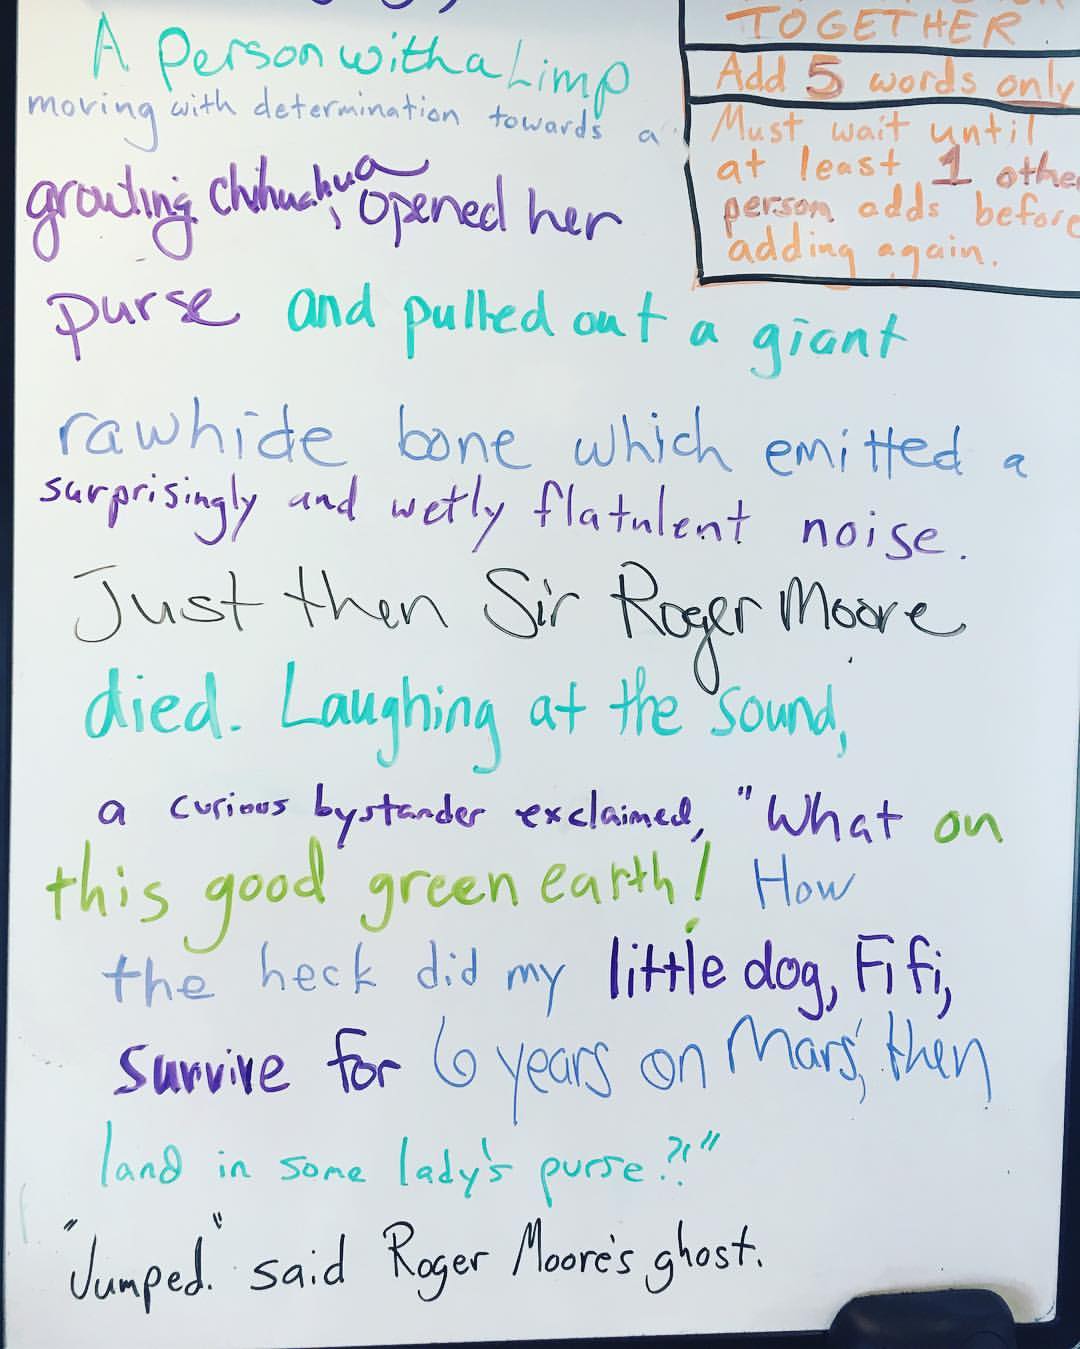 A person with a Limp
moving with determination towards a
growling chihuahua, opened her
purse and pulled out a giant
rawhide bone which emitted a
surprisingly and wetly flatulent noise.
Just then Sir Roger Moore
died. Laughing at the sound,
a curious bystander exclaimed, "What on
this good green earth! How
the heck did my little dog, Fifi,
survive for 6 years on Mars, then
land in some lady's purse?!"
"Jumped." said Roger Moore's ghost.
TOGETHER
Add 5 words only
Must wait until
at least 1 other
person adds before
adding again.